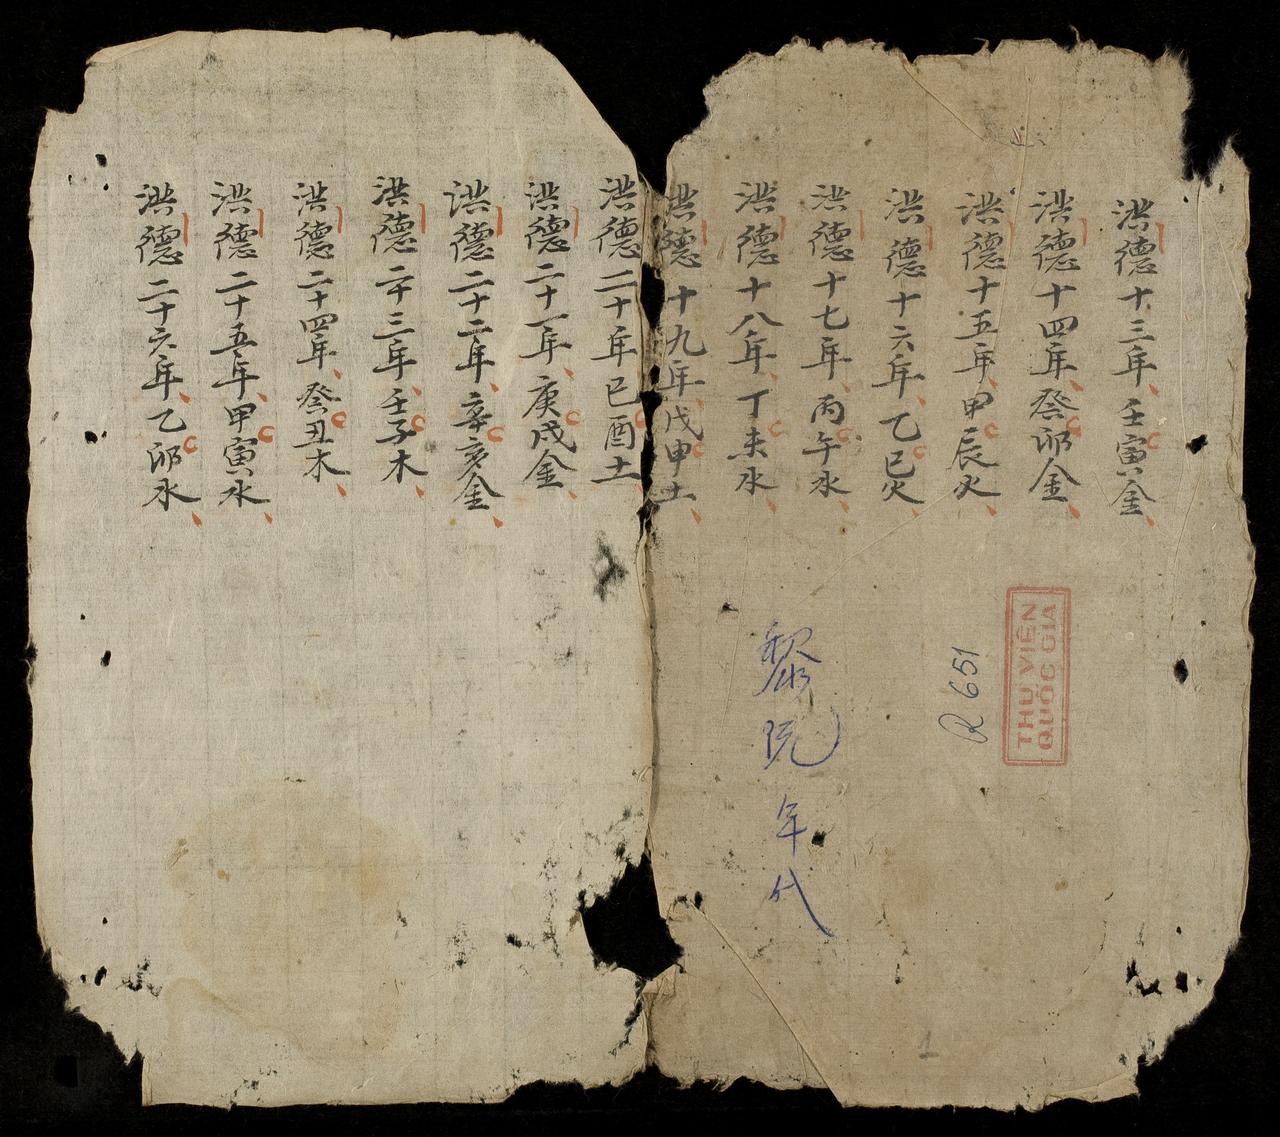 洪德十三年壬寅金
洪德十四年癸卯金
洪德十五年甲辰火
洪德十六年乙巳火
洪德十七年丙午水
洪德十八年丁未水
洪德十九年戊申土
洪德二十年己酉土
洪德二十一年庚戌金
洪德二十二年辛亥金
洪德二十三年壬子木
洪德二十四年癸丑木
洪德二十五年甲寅水
洪德二十六年乙卯水
黎阮年代
R 651
THƯ VIỆN
QUỐC GIA
1